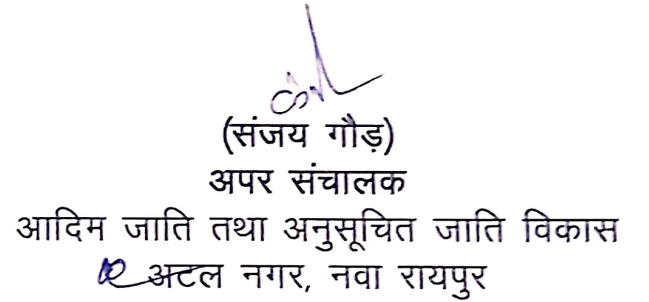 (संजय गौड़)
अपर संचालक
आदिम जाति तथा अनुसूचित जाति विकास
अटल नगर, नवा रायपुर